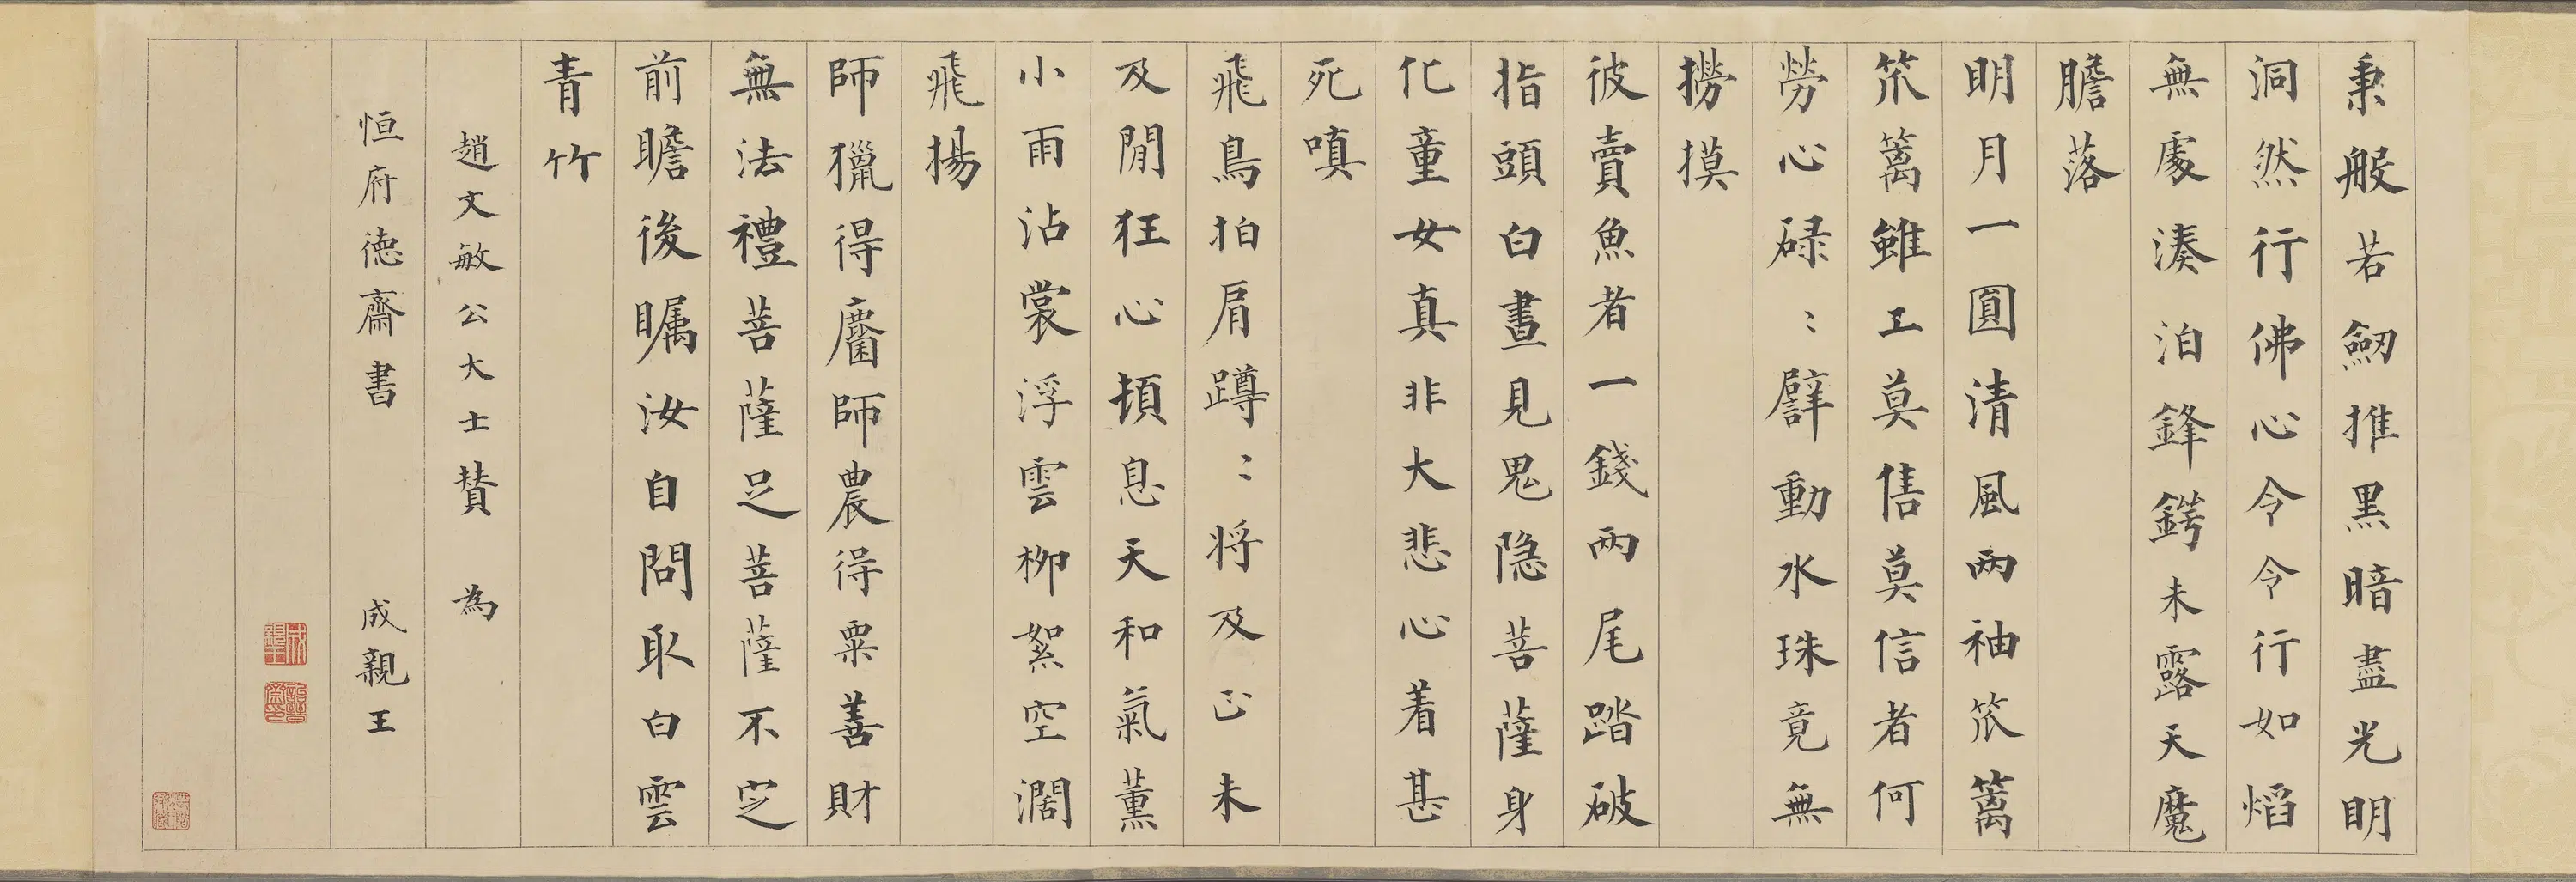 秉般若劒推黑暗盡光明
洞然行佛心令令行如熖
無處湊泊鋒鍔未露天魔
膽落
明月一圓清風兩袖笊籬
笊籬雖工莫售莫信者何
勞心碌〻擘動水珠竟無
撈摸
彼賣魚者一錢兩尾踏破
指頭白晝見鬼隐菩薩身
化童女真非大悲心着甚
死嗔
飛鳥拍肩蹲〻将及正未
及閒狂心頓息天和氣薰
小雨沾裳浮雲柳絮空濶
飛揚
師獵得麕師農得粟善財
無法禮菩薩足菩薩不定
前瞻後矚汝自問取白雲
青竹
趙文敏公大士賛 為
恒府德齋書 成親王